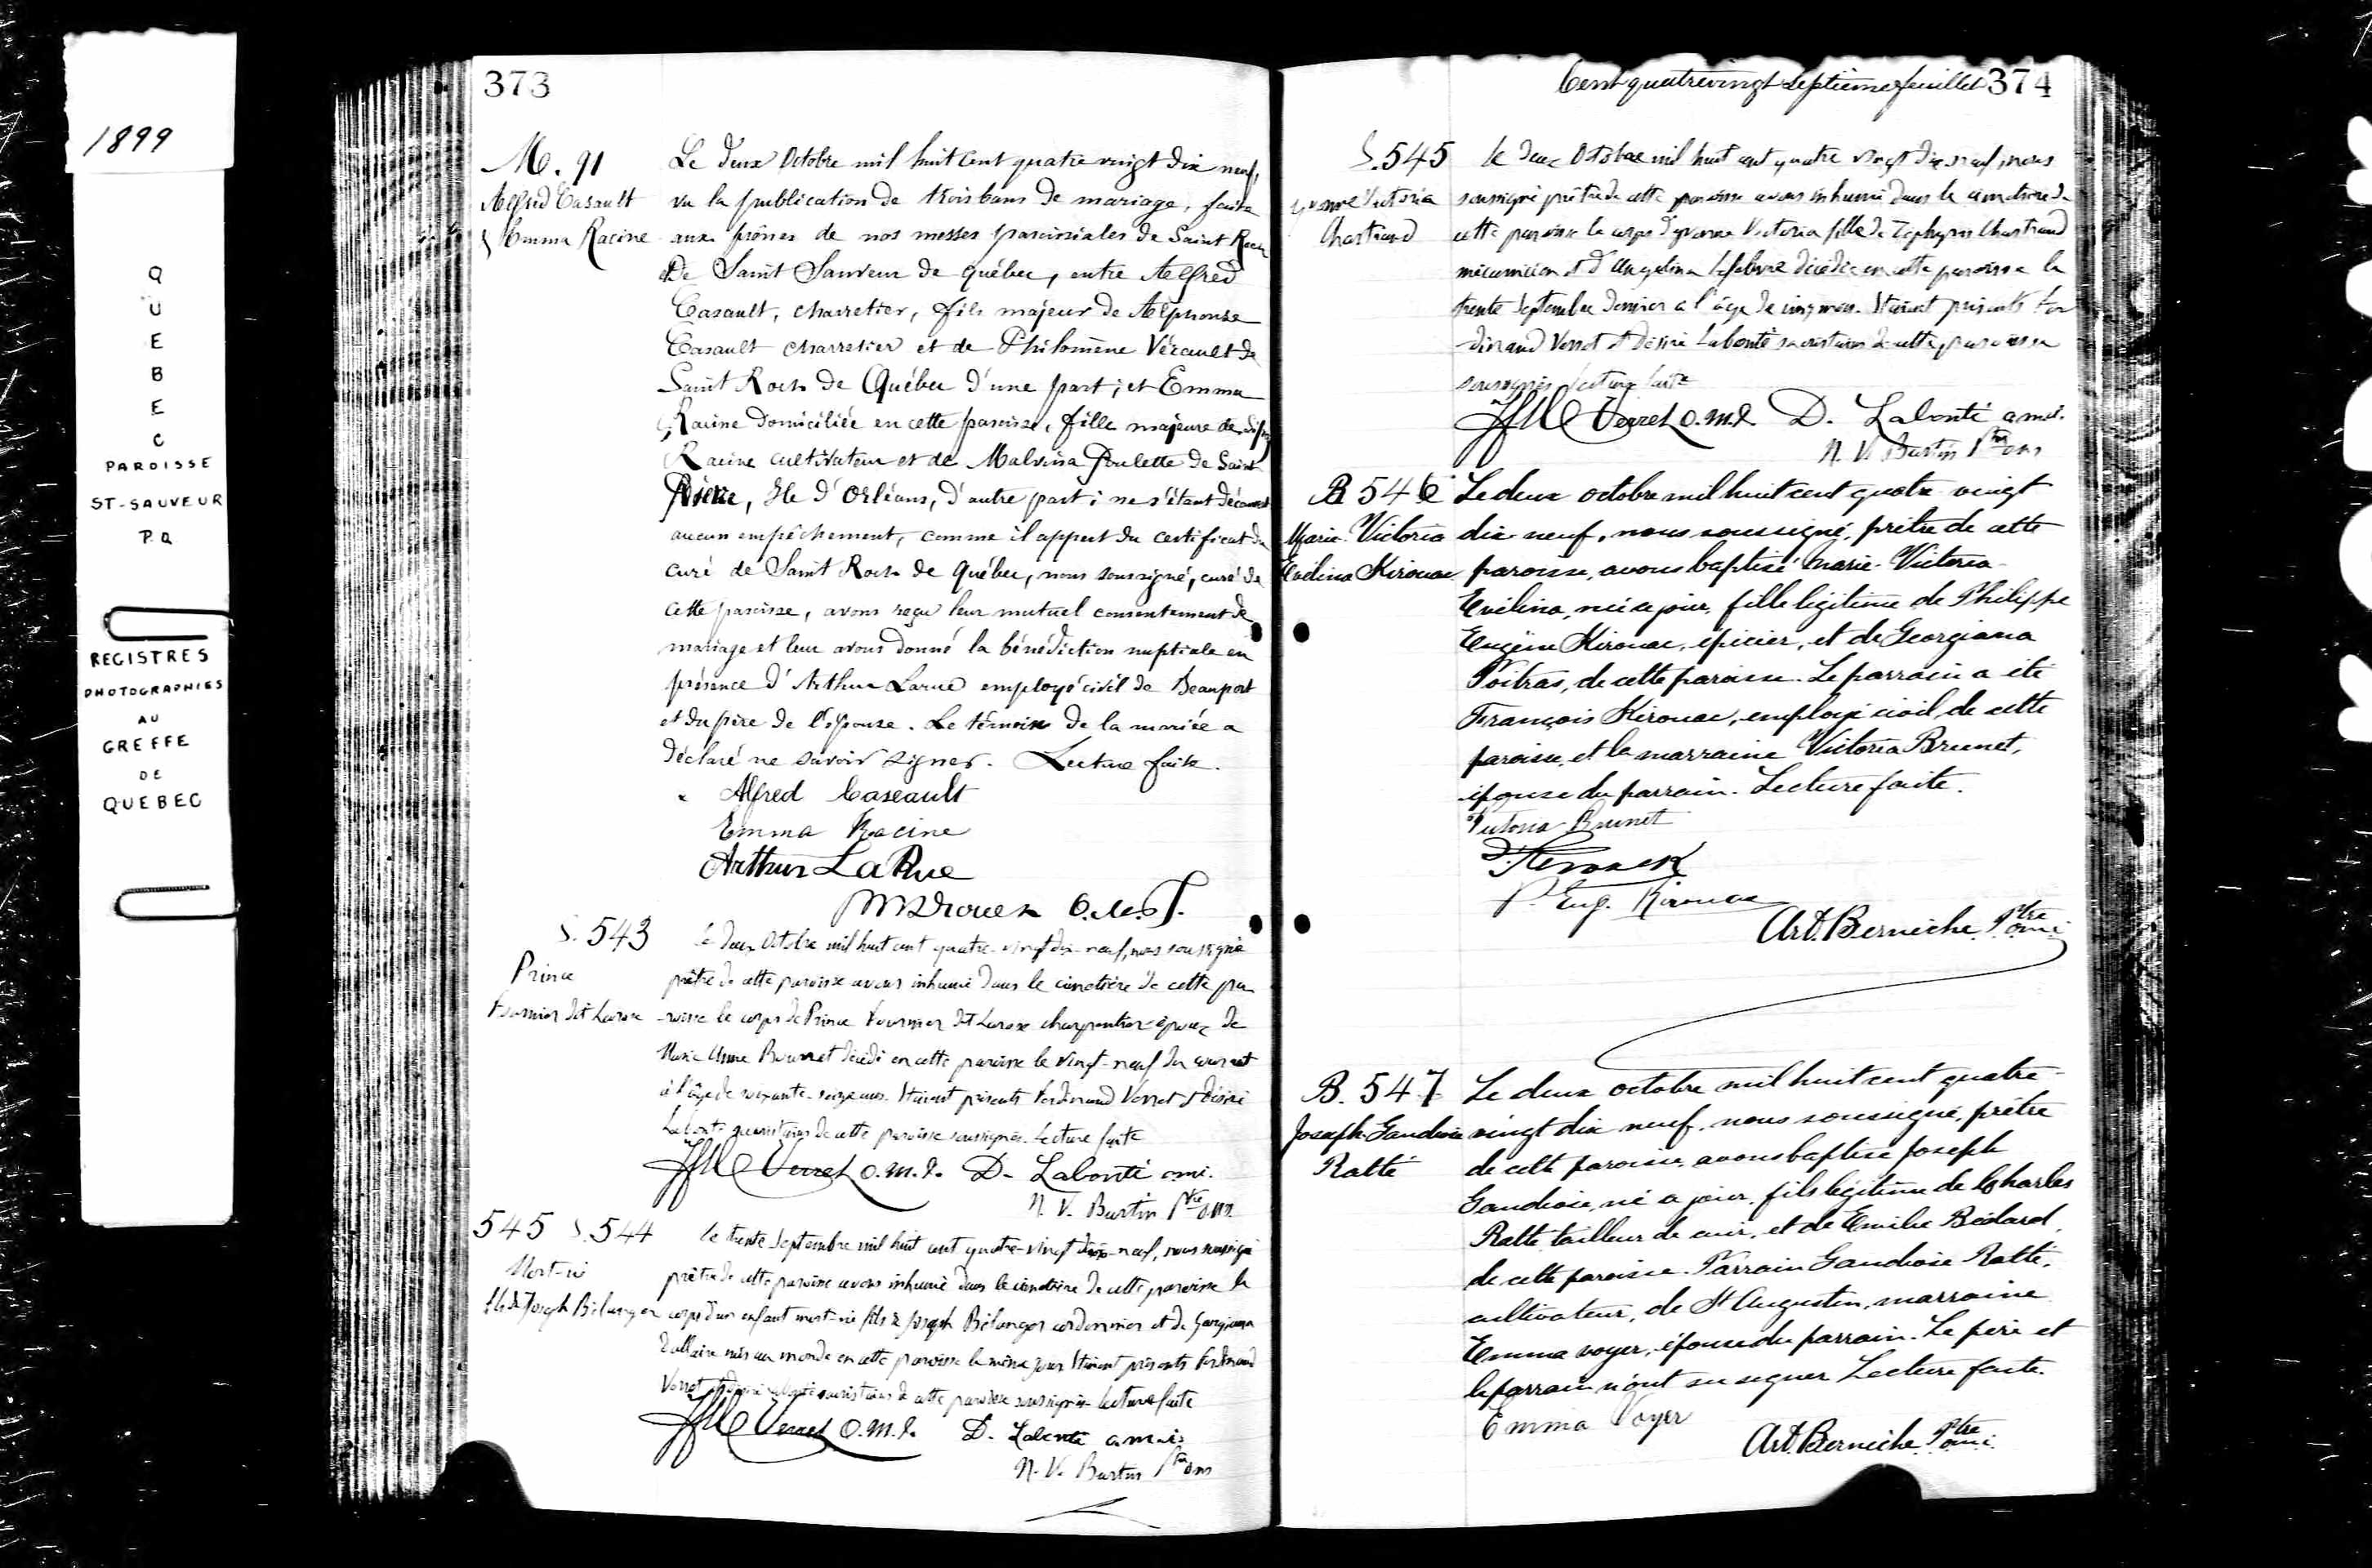 1899
QUEBEC
PAROISSE
ST-SAUVEUR
P.Q
REGISTRES
PHOTOGRAPHIES
AU
GREFFE
DE
QUEBEC
373
M. 91
Alfred Casault
& Emma Racine
Le deux Octobre mil huit cent quatre vingt dix neuf,
vu la publication de trois bans de mariage, faite
aux prônes de nos messes paroissiales de Saint Roch
et de Saint Sauveur de Québec, entre Alfred
Casault, charretier, fils majeur de Alphonse
Casault charretier et de Philomène Vézault de
Saint Roch de Québec d'une part ; et Emma
Racine domiciliée en cette paroisse, fille majeure de
Racine cultivateur et de Malvina Poulette de Saint
Pierre, Ile d'Orléans, d'autre part ; ne s'étant découvert
aucun empêchement, comme il appert du certificat du
curé de Saint Roch de Québec, nous soussigné, curé de
cette paroisse, avons reçu leur mutuel consentement de
mariage et leur avons donné la bénédiction nuptiale en
présence d'Arthur Larue employé civil de Beauport
et du père de l'épouse. Le témoin de la mariée a
déclaré ne savoir signer. Lecture faite.
Alfred Caseault
Emma Racine
Arthur LaRue
O.M.I.
S. 543
Prince
Fournier dit Larose
Le deux Octobre mil huit cent quatre-vingt dix-neuf, nous soussigné
prêtre de cette paroisse avons inhumé dans le cimetière de cette pa
roisse le corps de Prince Fournier dit Larose charpentier époux de
Marie Anne Brunet décédé en cette paroisse le vingt-neuf du courant
à l'âge de soixante-seize ans. Etaient présents Ferdinand Verret & Désiré
Labonté sacristains de cette paroisse soussignés. Lecture faite
Verret O.M.I. D. Labonté omi.
N. V. Burtin Ptre omi
545 S. 544
Mort-né
fils de Joseph Bélanger
Le trente Septembre mil huit cent quatre-vingt dix-neuf, nous soussigné
prêtre de cette paroisse avons inhumé dans le cimetière de cette paroisse le
corps d'un enfant mort-né fils de Joseph Bélanger cordonnier et de Georgiana
Dallaire mis au monde en cette paroisse le même jour Etaient présents Ferdinand
Verret & Désiré Labonté sacristains de cette paroisse soussignés lecture faite
Verret O.M.I. D. Labonté o.m.i.
N. V. Burtin Ptre omi
Cent quatrevingt septième feuillet 374
S. 545
Yvonne Victoria
Chartrand
Le deux Octobre mil huit cent quatre vingt dix neuf, nous
soussigné prêtre de cette paroisse avons inhumé dans le cimetière de
cette paroisse le corps d'Yvonne Victoria fille de Zéphyrin Chartrand
mécanicien & d'Angelina Lefebvre décédée en cette paroisse le
trente Septembre dernier à l'âge de cinq mois. Etaient présents Fer
dinand Verret & Désiré Labonté sacristains de cette paroisse
soussignés lecture faite
Verret O.M.I. D. Labonté omi.
N. V. Burtin Ptre omi
B 546
Marie Victoria
Evelina Kirouac
Le deux octobre mil huit cent quatre-vingt
dix-neuf, nous soussigné, prêtre de cette
paroisse, avons baptisé Marie-Victoria-
Evélina, née ce jour, fille légitime de Philippe
Eugène Kirouac, épicier, et de Georgiana
Poitras, de cette paroisse. Le parrain a été
François Kirouac, employé civil, de cette
paroisse, et la marraine Victoria Brunet,
épouse du parrain. Lecture faite.
Victoria Brunet
F. Kerouack
P. Eug. Kirouac
Art. Berniche Ptre omi
B. 547
Joseph Gaudiose
Ratté
Le deux octobre mil huit cent quatre-
vingt dix neuf, nous soussigné, prêtre
de cette paroisse, avons baptisé Joseph
Gaudiose, né ce jour, fils légitime de Charles
Ratté tailleur de cuir, et de Emilie Bédard,
de cette paroisse. Parrain Gaudiose Ratté,
cultivateur, de St Augustin, marraine
Emma voyer, épouse du parrain. Le père et
le parrain n'ont su signer Lecture faite.
Emma Voyer
Art. Berniche Ptre omi